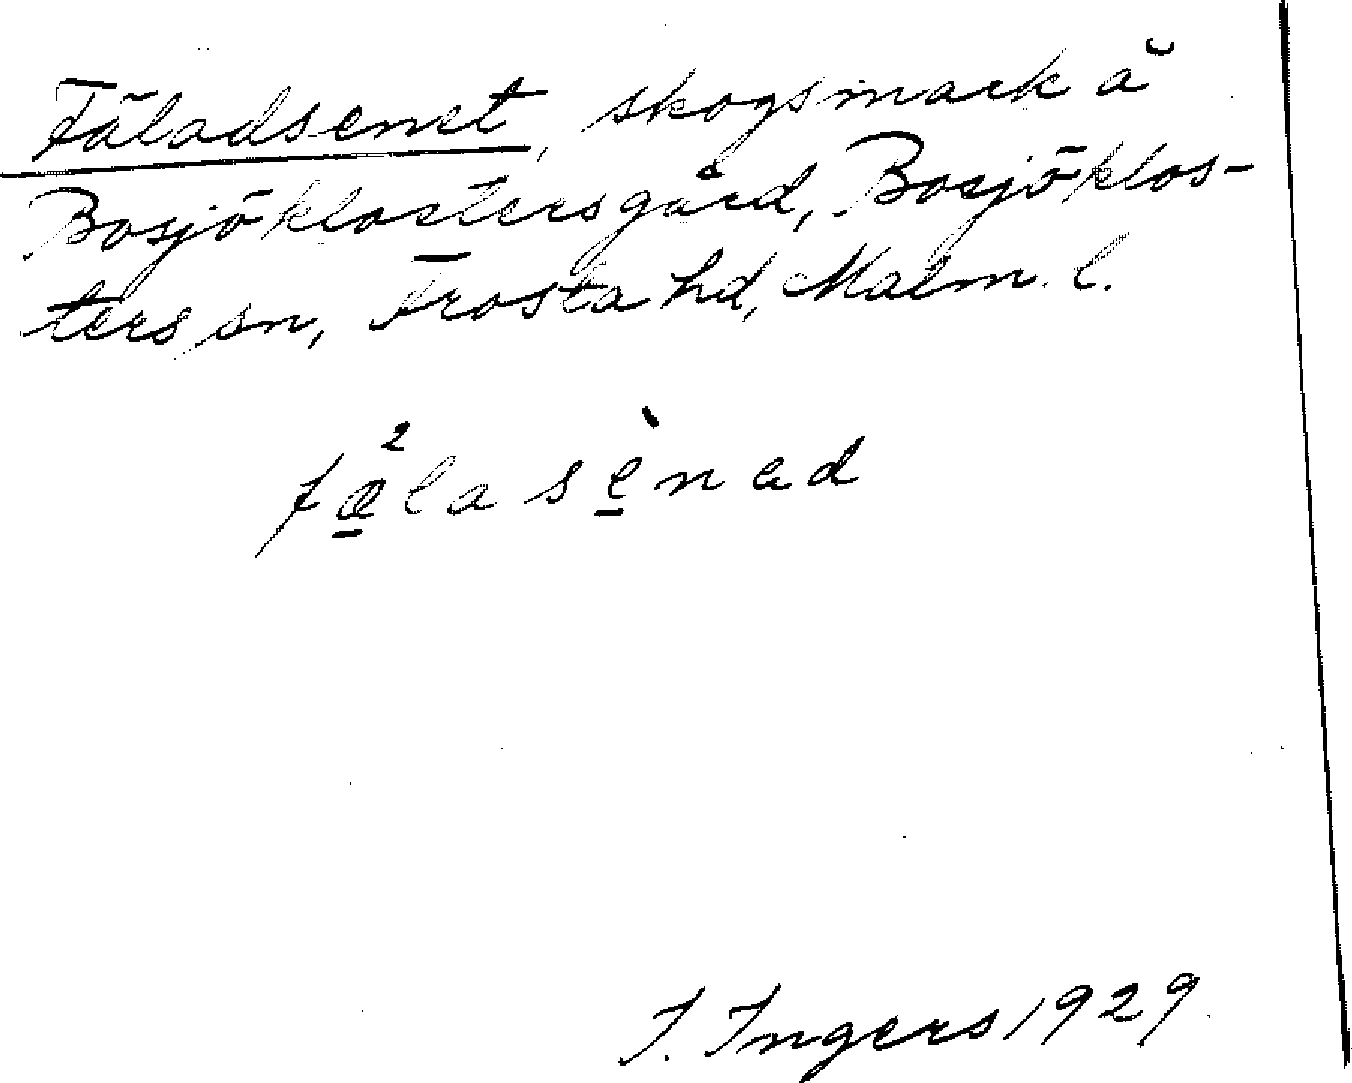 Fäladsenet, skogsmark å
Bosjöklostersgård, Bosjöklos-
ters sn, Frosta hd, Malm. l.
fæ̱²lasè̱nəd
I. Ingers 1929